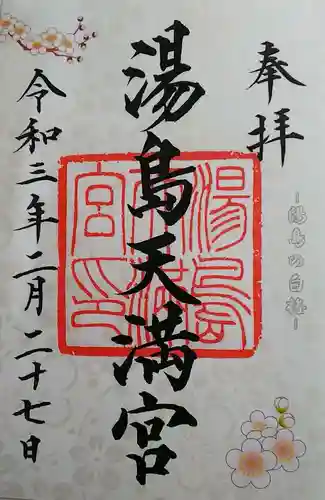 奉拝
湯島の白梅
湯島天満宮
湯島天満宮印
令和三年二月二十七日